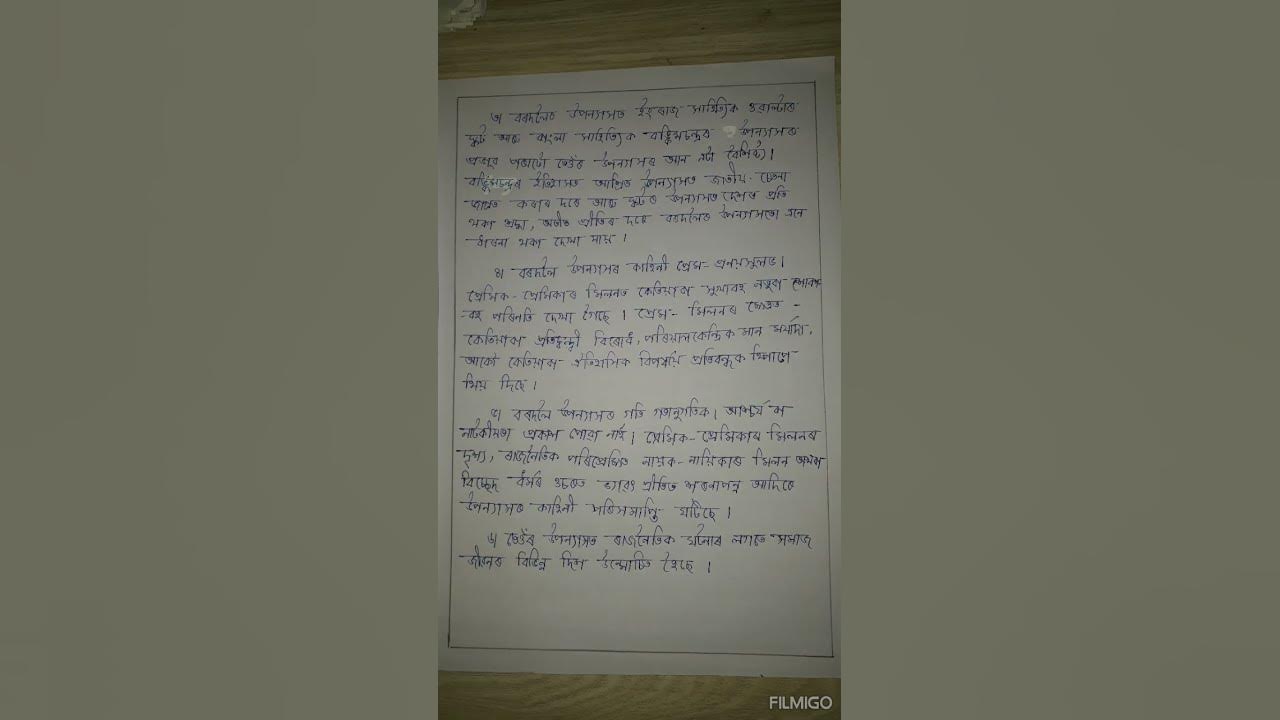 ৩। বৰদলৈৰ উপন্যাসত ইংৰাজ সাহিত্যিক ৱাল্টাৰ
স্কট আৰু বাংলা সাহিত্যিক বঙ্কিমচন্দ্ৰৰ উপন্যাসৰ
প্ৰভাৱ পৰাটো তেওঁৰ উপন্যাসৰ আন এটা বৈশিষ্ট্য।
বঙ্কিমচন্দ্ৰৰ ইতিহাসত আশ্ৰিত উপন্যাসত জাতীয় চেতনা
জাগ্ৰত কৰাৰ দৰে আৰু স্কটৰ উপন্যাসত দেশৰ প্ৰতি
থকা শ্ৰদ্ধা, অতীত প্ৰীতিৰ দৰে বৰদলৈৰ উপন্যাসতো এনে
ধাৰণা থকা দেখা যায়।
৪। বৰদলৈ উপন্যাসৰ কাহিনী প্ৰেম-প্ৰনয়মূলভ।
প্ৰেমিক-প্ৰেমিকাৰ মিলনত কেতিয়াবা সুখাবহ নতুবা শোকা-
বহ পৰিনতি দেখা গৈছে। প্ৰেম-মিলনৰ ক্ষেত্ৰত -
কেতিয়াবা প্ৰতিদ্বন্দ্বী বিৰোধ, পৰিয়ালকেন্দ্ৰিক মান মৰ্যাদা,
আকৌ কেতিয়াবা ঐতিহাসিক বিপৰ্যয় প্ৰতিবন্ধক হিচাপে
থিয় দিছে।
৫। বৰদলৈ উপন্যাসৰ গতি গতানুগতিক। আশ্চৰ্য বা
নাটকীয়তা প্ৰকাশ পোৱা নাই। প্ৰেমিক-প্ৰেমিকাৰ মিলনৰ
দৃশ্য, ৰাজনৈতিক পৰিপ্ৰেক্ষিত নায়ক-নায়িকাৰ মিলন অথবা
বিচ্ছেদ ধৰ্মৰ ওচৰত ভাৱৎ প্ৰীতিত শৰণাপন্ন আদিৰে
উপন্যাসৰ কাহিনী পৰিসমাপ্তি ঘটিছে।
৬। তেওঁৰ উপন্যাসত ৰাজনৈতিক ঘটনাৰ লগতে সমাজ
জীৱনৰ বিভিন্ন দিশ উন্মোচিত হৈছে।
FILMIGO